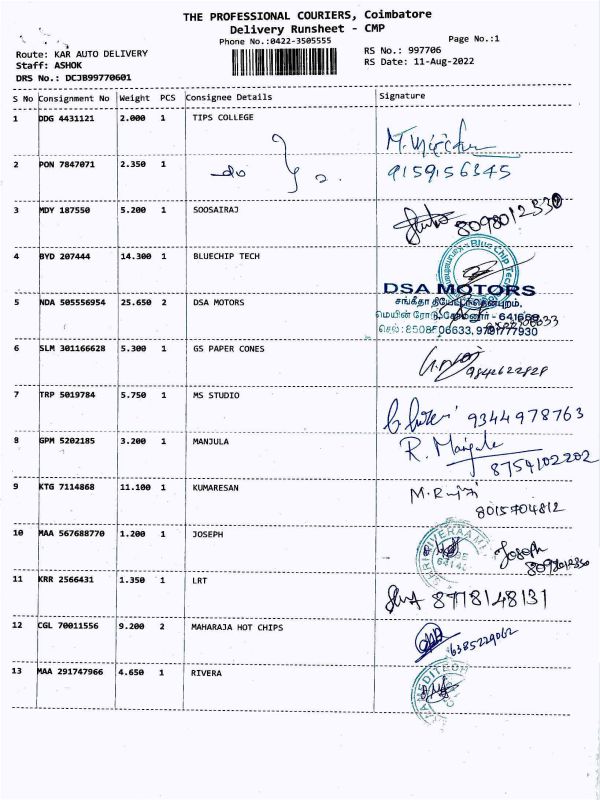 THE PROFESSIONAL COURIERS, Coimbatore
Delivery Runsheet - CMP
Phone No.:0422-3505555
Page No.:1
Route: KAR AUTO DELIVERY
RS No.: 997706
Staff: ASHOK
RS Date: 11-Aug-2022
DRS No.: DCJB99770601
S No Consignment No Weight PCS Consignee Details Signature
1 DDG 4431121 2.000 1 TIPS COLLEGE
2 PON 7847071 2.350 1 do 9159156345
3 MDY 187550 5.200 1 SOOSAIRAJ 8098012330
4 BYD 207444 14.300 1 BLUECHIP TECH Blue Chip Tech
DSA MOTORS
5 NDA 505556954 25.650 2 DSA MOTORS
சங்கீதா தியேட்டர்
மெயின் ரோடு
செல்: 9791777930
6 SLM 301166628 5.300 1 GS PAPER CONES 9842622828
7 TRP 5019784 5.750 1 MS STUDIO 9344978763
8 GPM 5202185 3.200 1 MANJULA R. Manjula
8754102202
9 KTG 7114868 11.100 1 KUMARESAN
8015704812
10 MAA 567688770 1.200 1 JOSEPH Joseph
8098012330
11 KRR 2566431 1.350 1 LRT 8778148131
12 CGL 70011556 9.200 2 MAHARAJA HOT CHIPS 6385229062
13 MAA 291747966 4.650 1 RIVERA